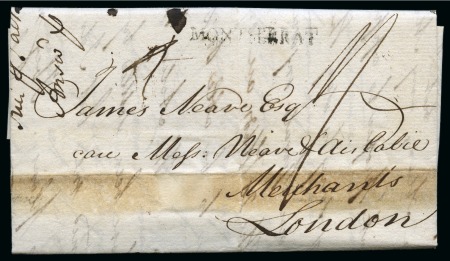 MONTSERRAT
James Neave Esq
care Mess: Neave & Aislabie
Merchants
London